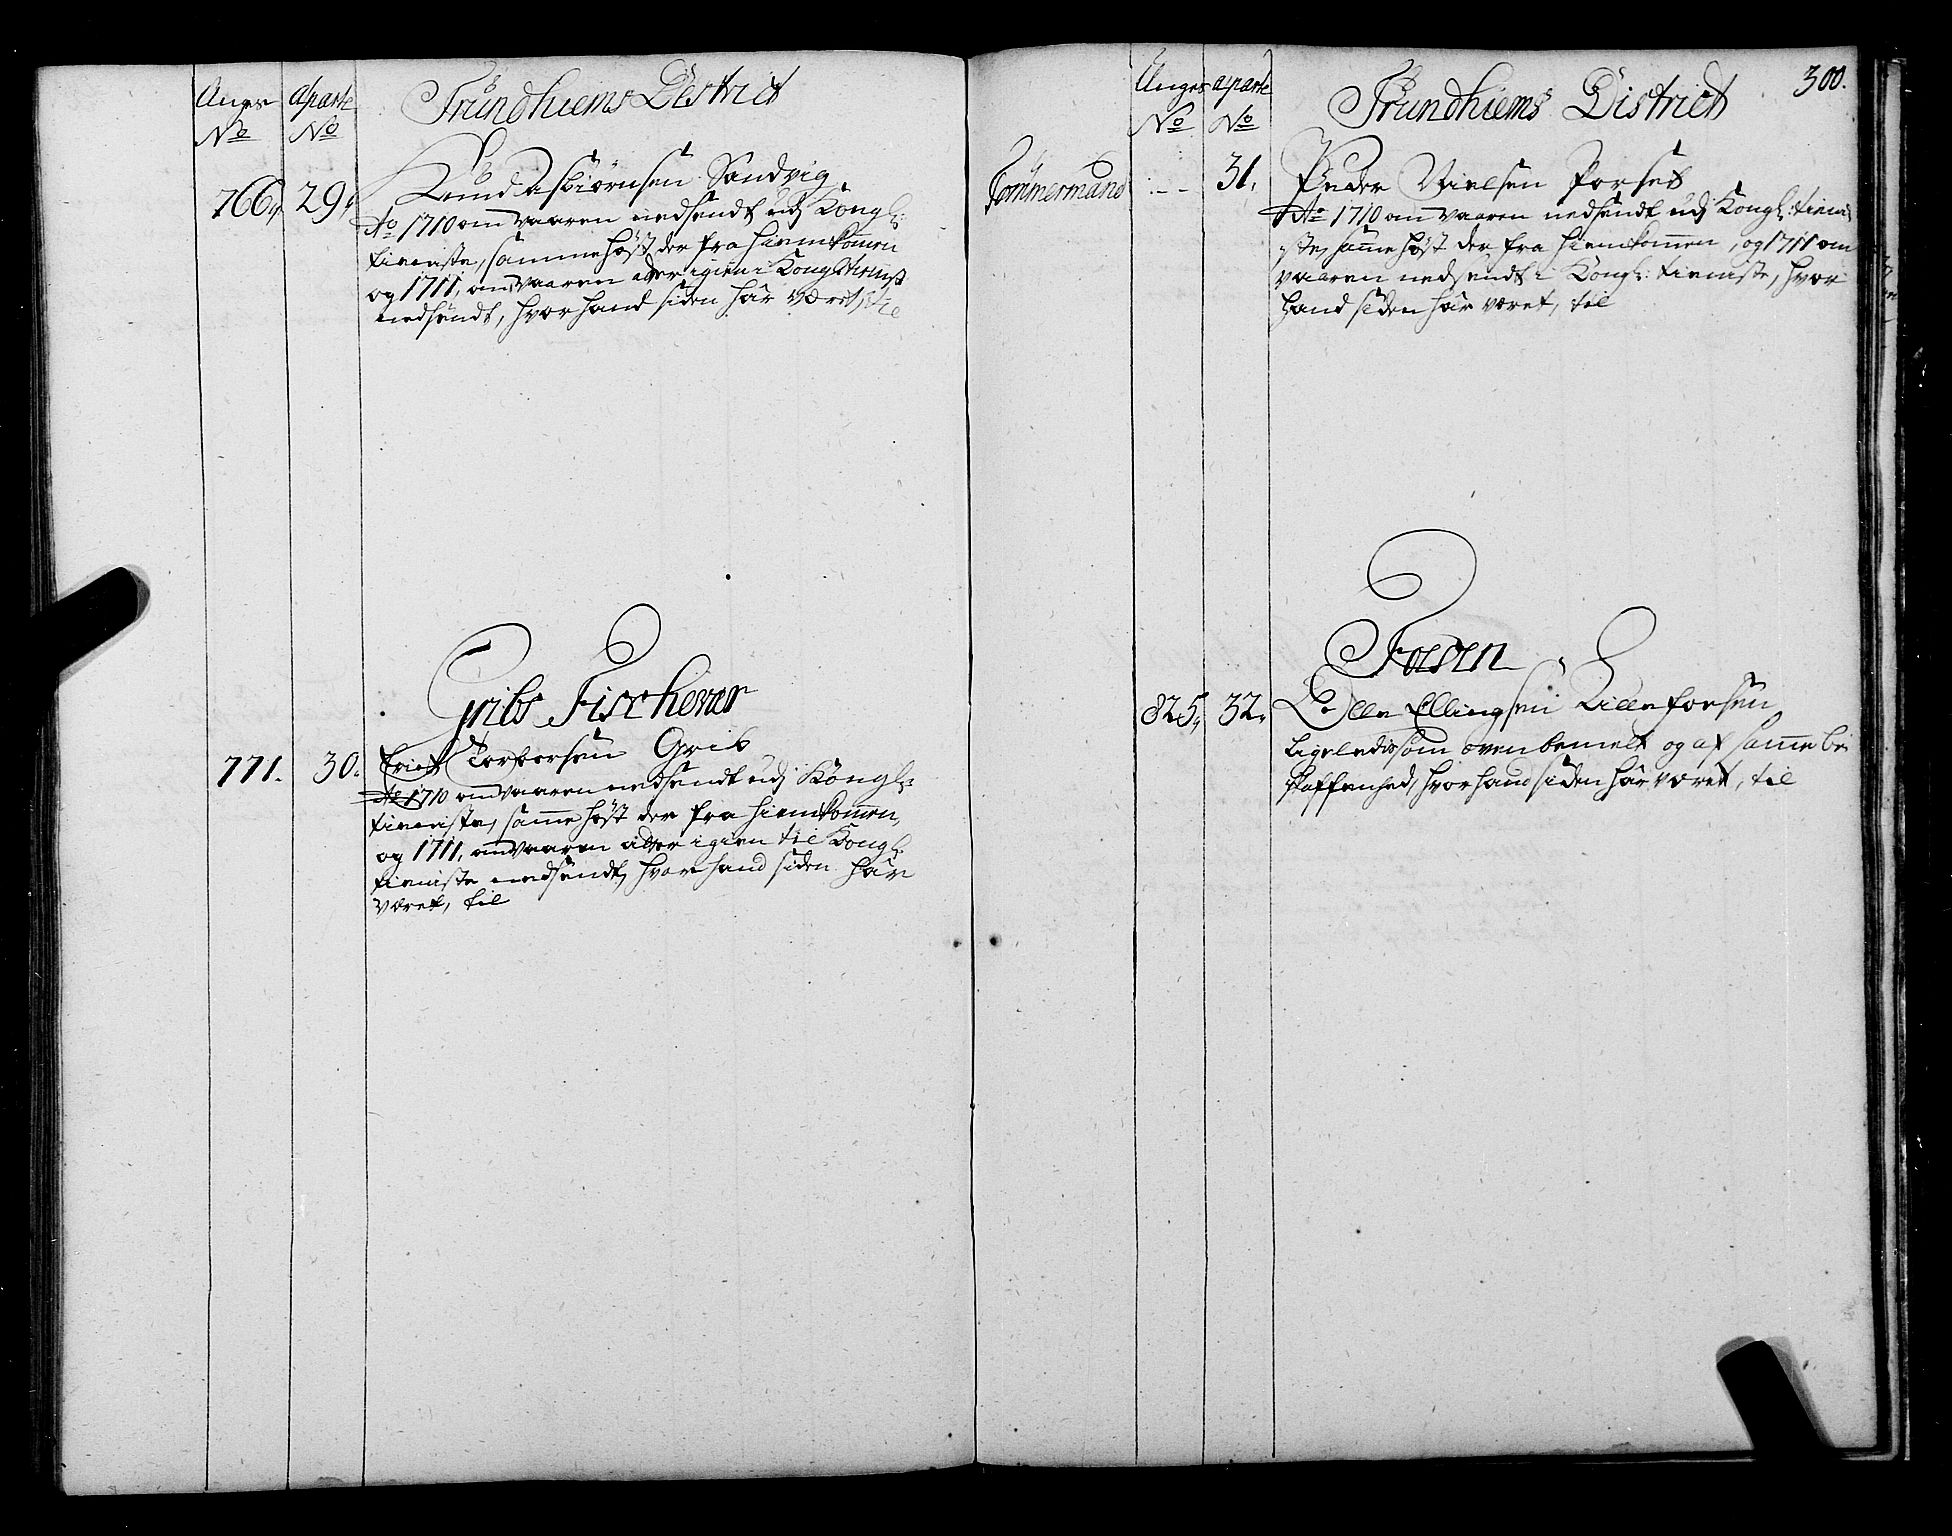 Anger aparte Trundhiems District
No No
766, 29, Knud Asbiørnsen Sandvig
Ao 1710 om vaaren nedsendt udj Kongl:
tieniste, samme høst der fra hiemkommen
og 1711, om vaaren atter igien i Kongl: tienist
nedsendt, hvor hand siden har været, til
Gribs Fischevær
771. 30. Erich Torbersen Grib
Ao 1710 om vaaren nedsendt udj Kongl:
tieniste, samme høst der fra hiemkommen,
og 1711, om vaaren atter igien til Kongl:
tieniste nedsendt, hvor hand siden har
været, til
Anger aparte Trundhiems District 300.
No No
Tømmermand 31, Peder Nielsen Porset
Ao 1710 om vaaren nedsendt udj Kongl: tieni
ste, samme høst der fra hiemkommen, og 1711 om
vaaren nedsendt i Kongl: tieniste, hvor
hand siden har været, til
Foesen
825, 32, Olle Ellingsen Lille Foesen
ligeledis som ovenbemelt og af samme be
skaffenhed, hvor hand siden har været, til